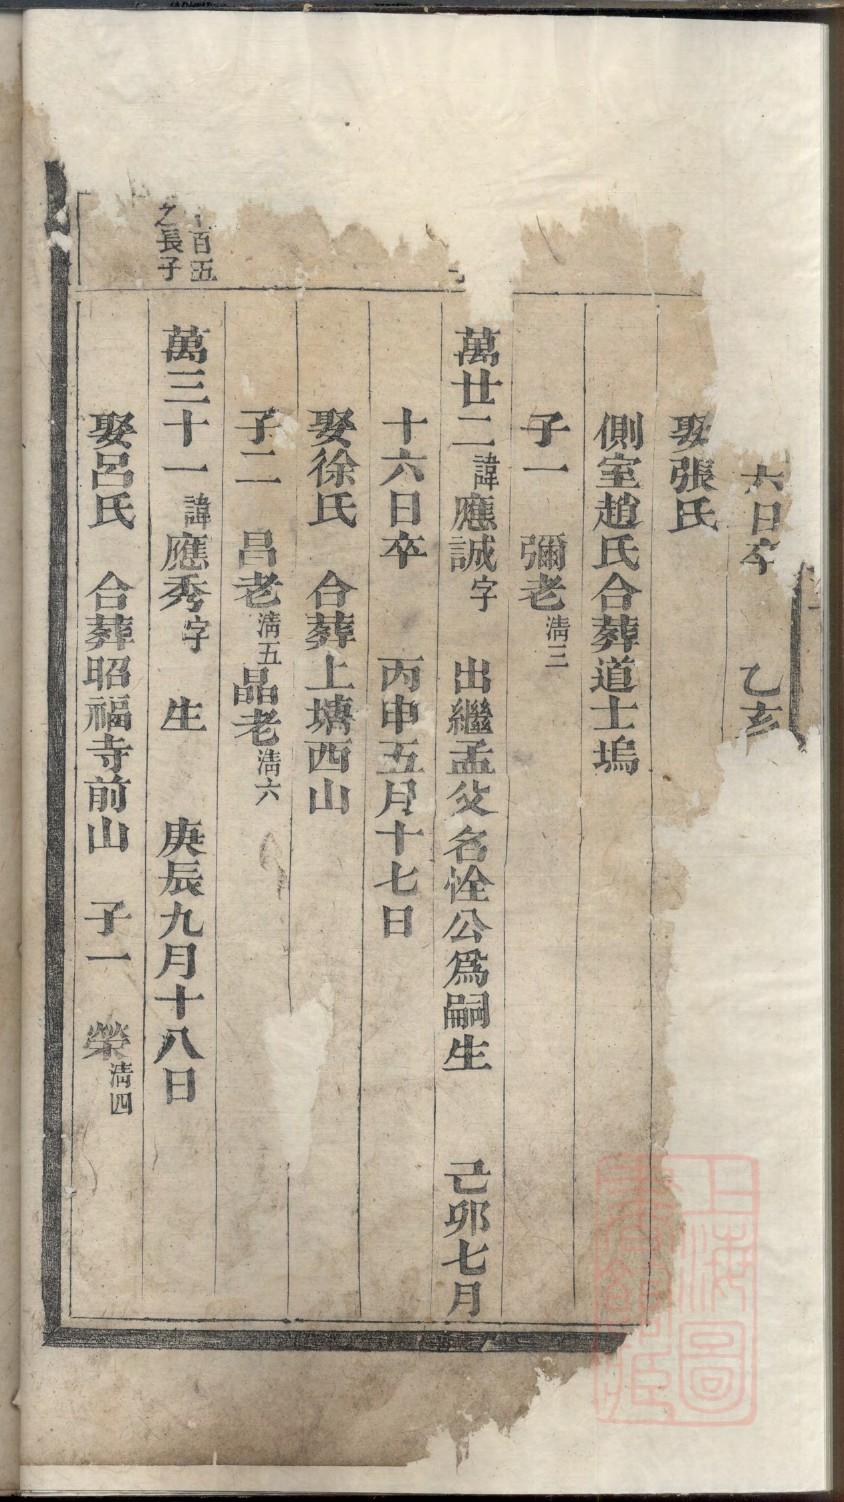 六日卒 乙亥
娶張氏
側室趙氏合葬道士塢
子一 彌老清三
萬廿二諱應誠字 出繼孟父名恮公爲嗣生 己卯七月
十六日卒 丙申五月十七日
娶徐氏 合葬上塘西山
子二 呂老清五晶老清六
百五
之長子
萬三十一諱應秀字 生 庚辰九月十八日
娶呂氏 合葬昭福寺前山 子一 榮清四
上海圖
書館藏